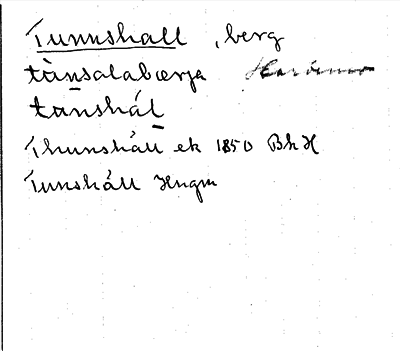 Tunnshall , berg
tànsalabærja
tanshál
Thunshäll ek 1850 BhH
Tunshäll Hngm